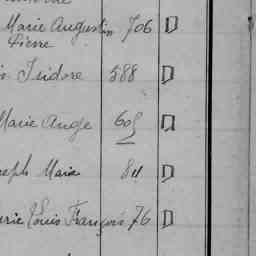 Marie Augustin 706 D
Pierre
Isidore 588 D
Marie Ange 605 D
seph Marie 84 D
arie Louis François 76 D